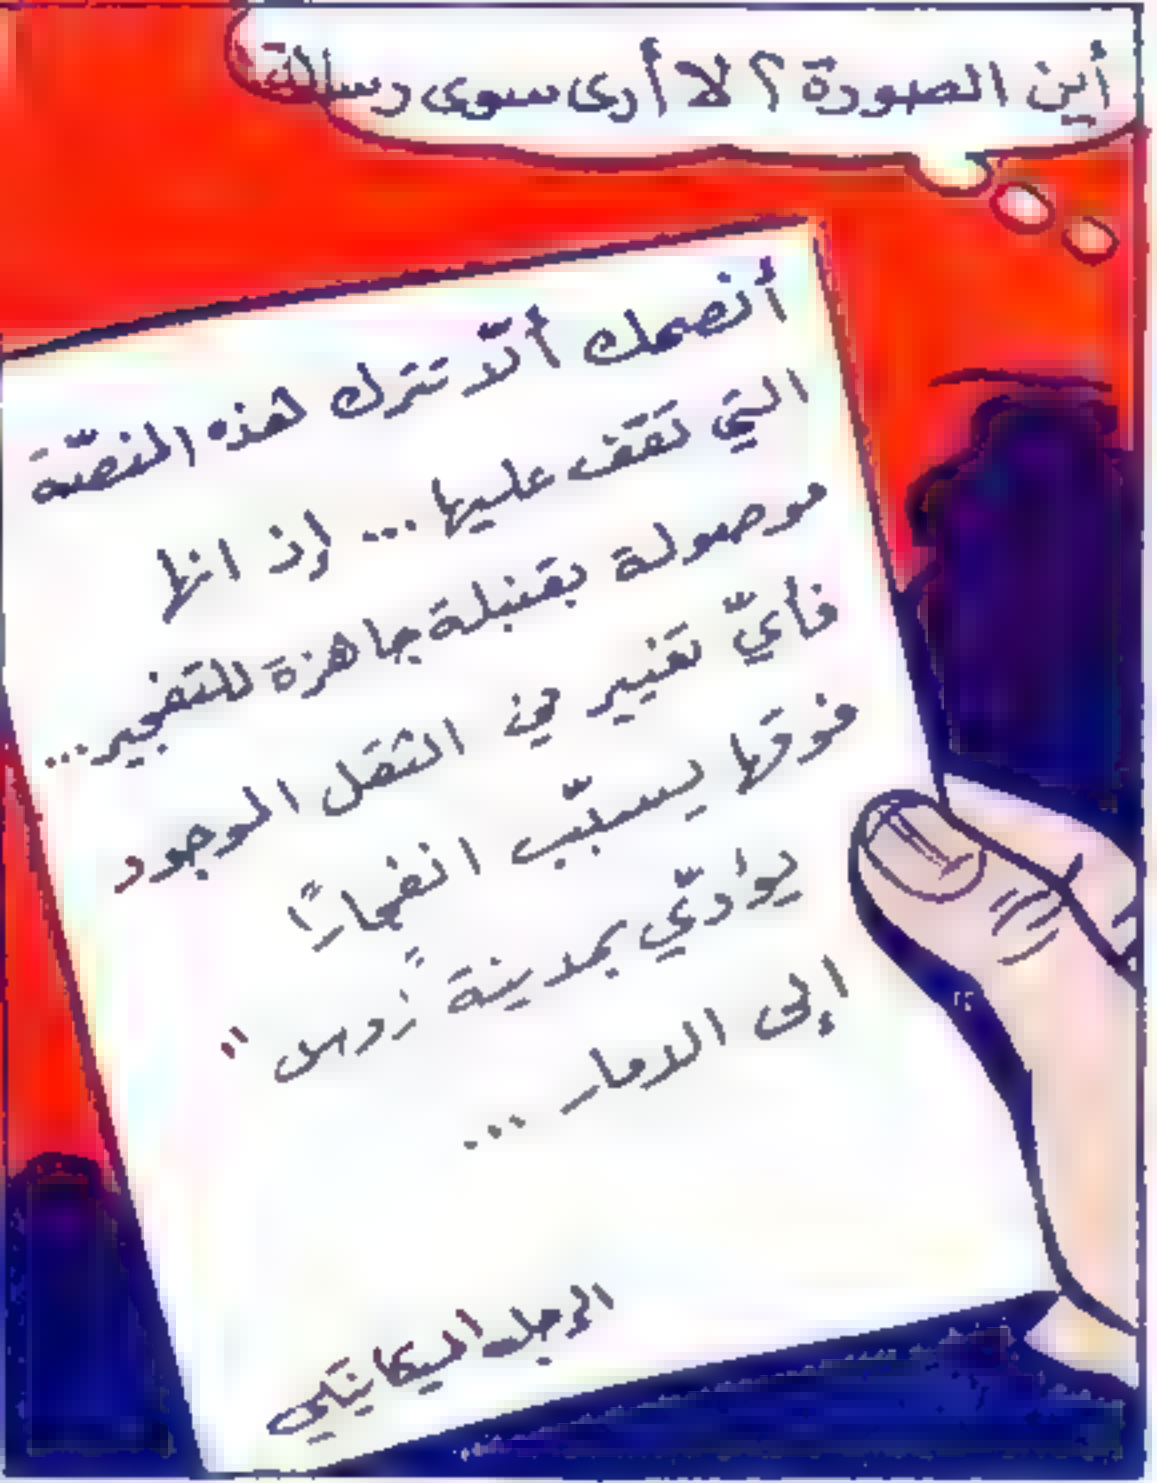 أين الصورة؟ لا أرى سوى رسالة!
أنصحك ألّا تترك هذه المنصّة
التي تقف عليها... إذ انها
موصولة بقنبلة جاهزة للتفجير...
فأيّ تغيير في الثقل الموجود
فوقها يسبّب انفجارًا
يؤدّي بمدينة "زوس"
إلى الدمار...
الرجل الميكانيكي